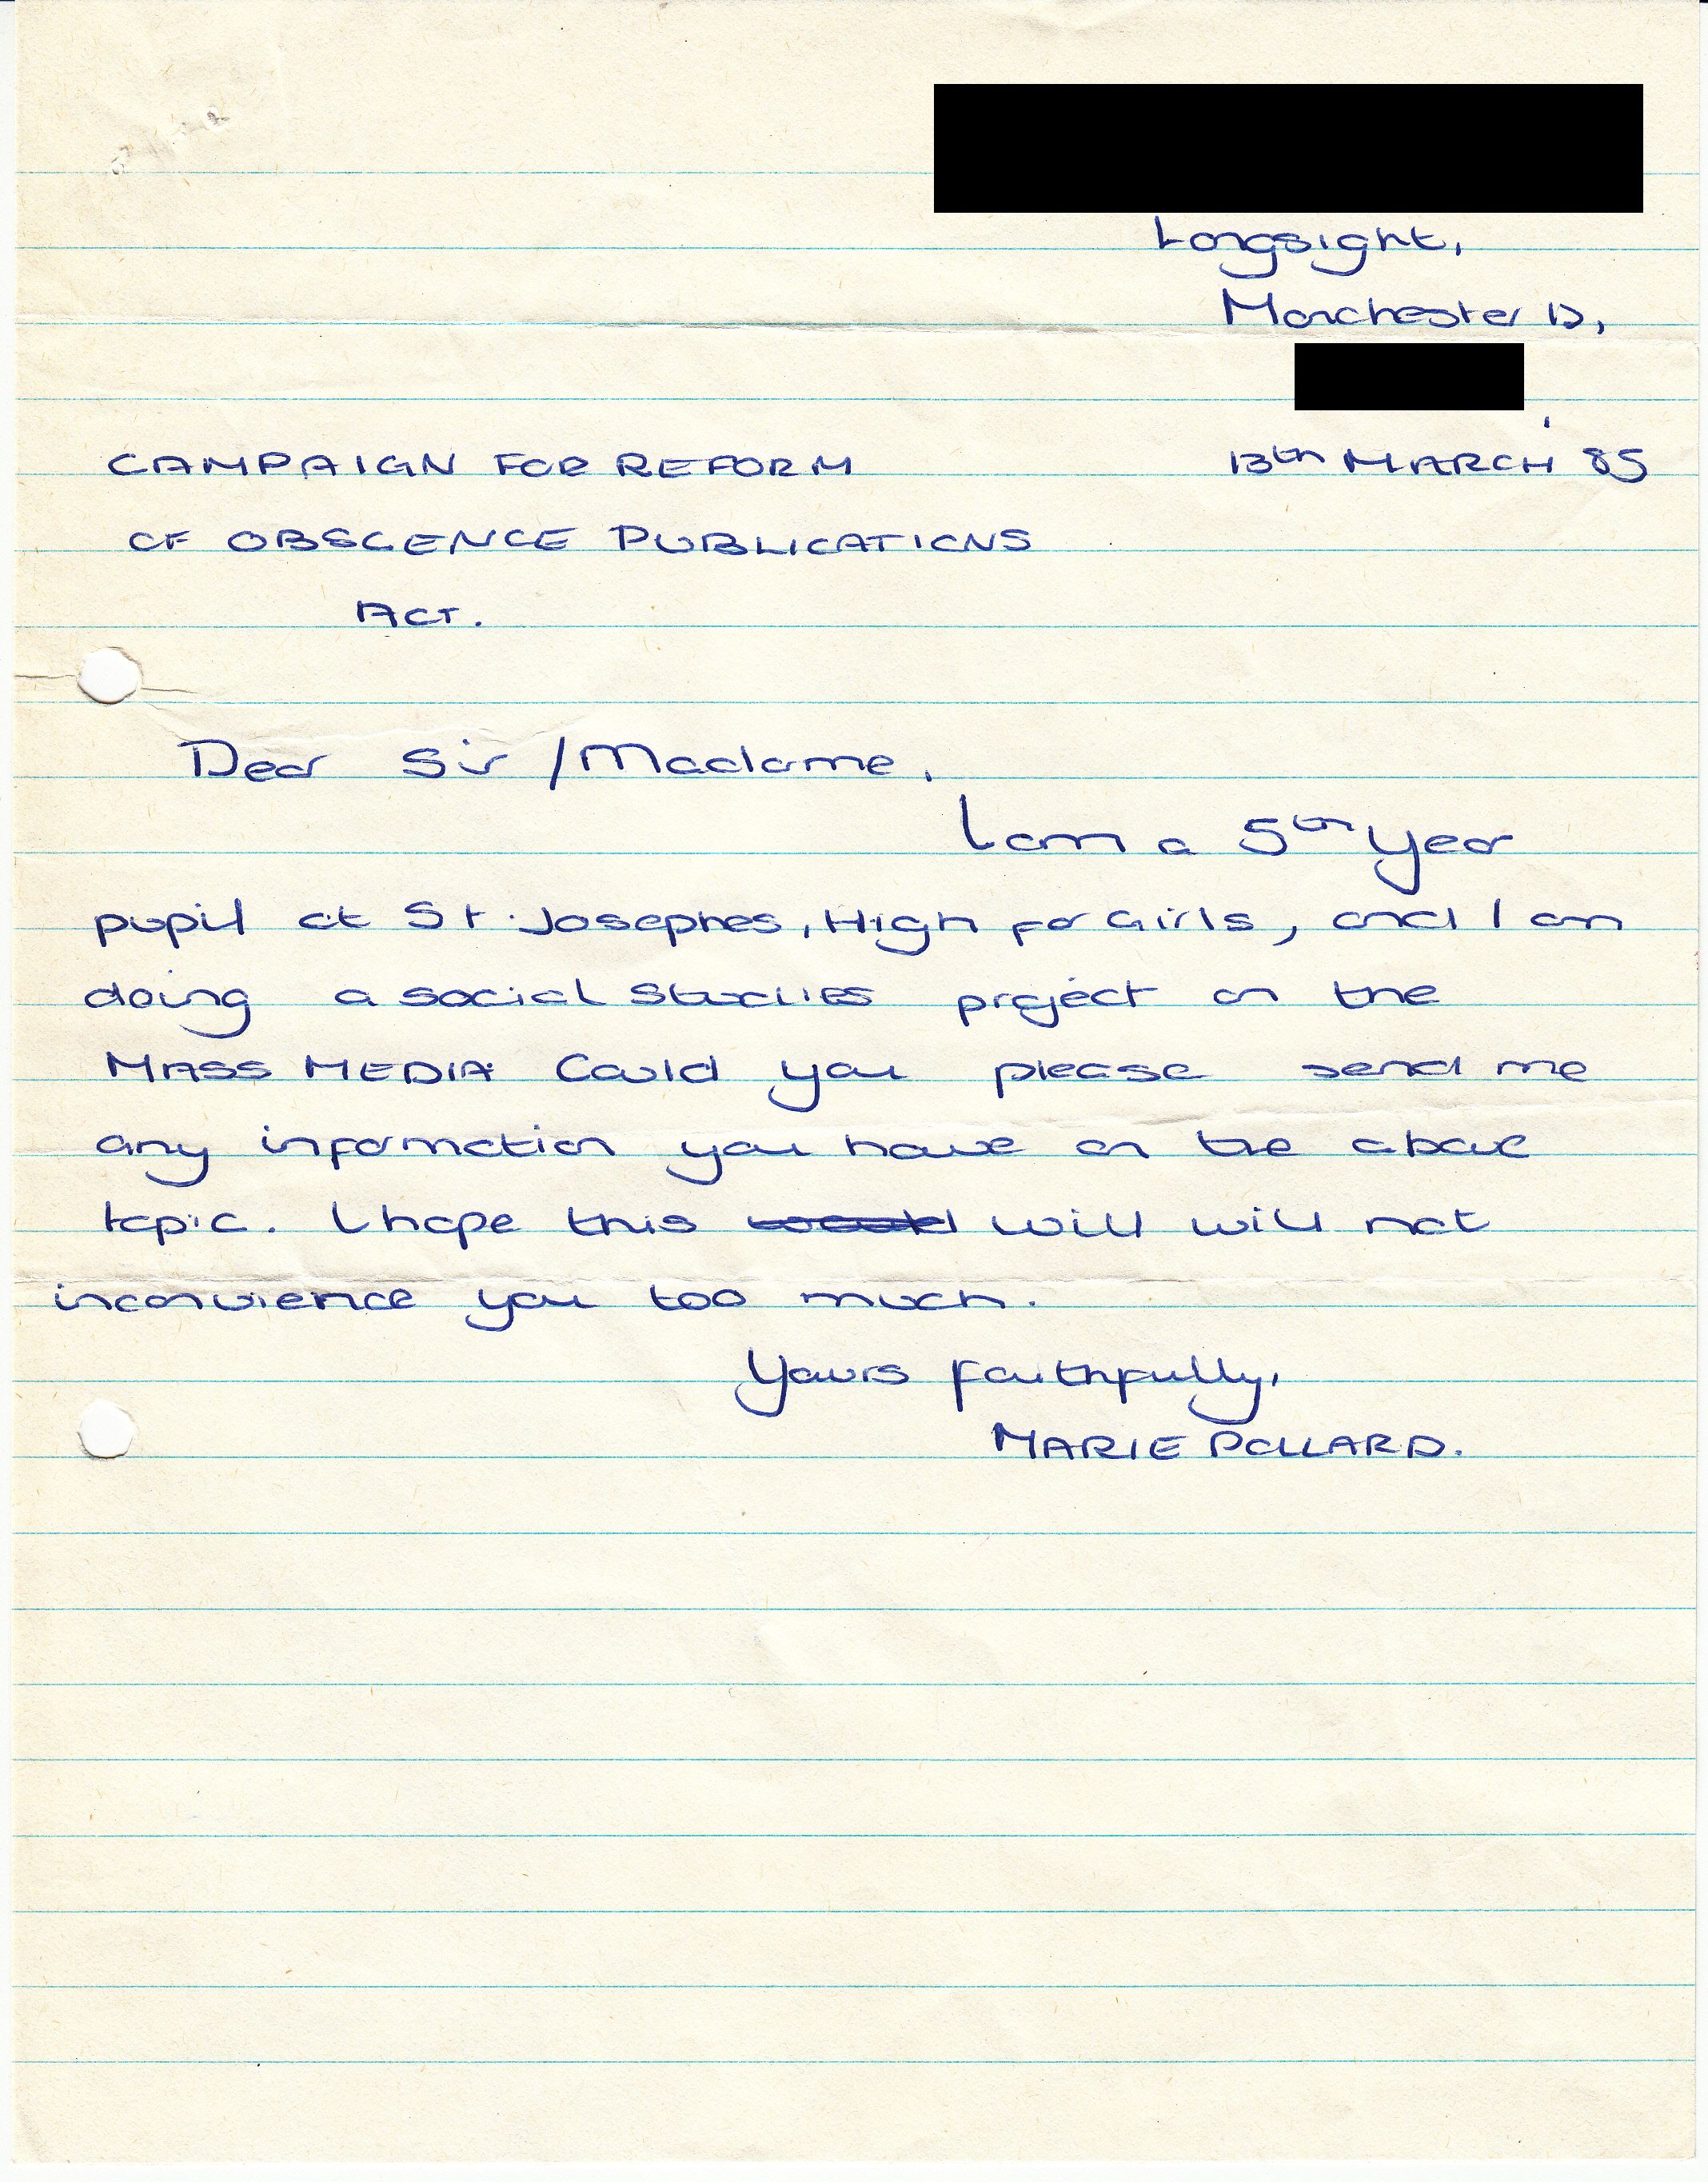 Longsight,
Manchester 13,
CAMPAIGN FOR REFORM 13th MARCH 85
OF OBSCENCE PUBLICATIONS
ACT.
Dear Sir / Madame,
I am a 5th Year
pupil at St. Josephes, High for Girls, and I am
doing a social studies project on the
MASS MEDIA. Could you please send me
any information you have on the above
topic. I hope this will will not
inconvience you too much.
Yours faithfully,
MARIE POLLARD.